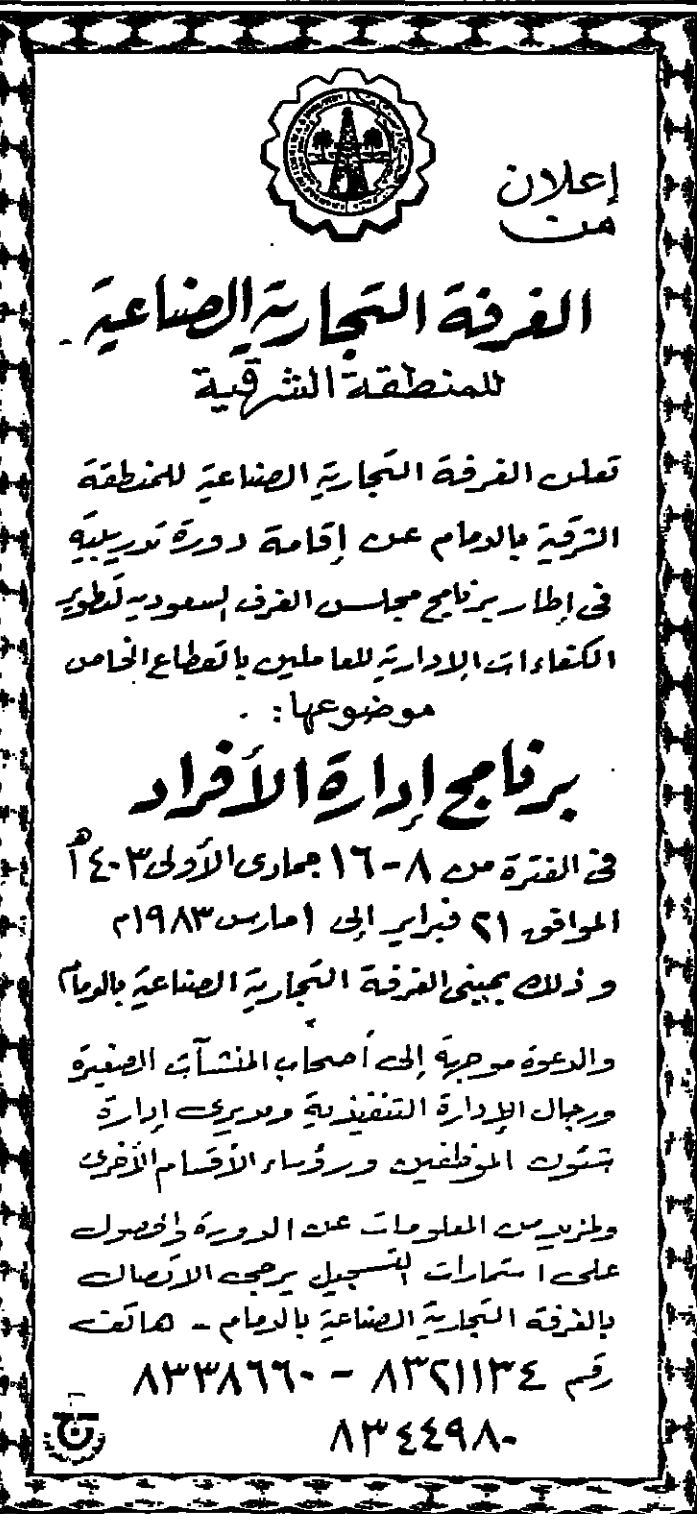 إعلان
من
الغرفة التجارية الصناعية
للمنطقة الشرقية
تعلن الغرفة التجارية الصناعية للمنطقة
الشرقية بالدمام عن إقامة دورة تدريبية
في إطار برنامج مجلس الغرف السعودية لتطوير
الكفاءات الإدارية للعاملين بالقطاع الخاص
موضوعها:
برنامج إدارة الأفراد
في الفترة من ٨-١٦ جمادى الأولى ١٤٠٣هـ
الموافق ٢١ فبراير إلى ١ مارس ١٩٨٣م
وذلك بمبنى الغرفة التجارية الصناعية بالدمام
والدعوة موجهة إلى أصحاب المنشآت الصغيرة
ورجال الإدارة التنفيذية ومديرى إدارة
شئون الموظفين ورؤساء الأقسام الأخرى
ولمزيد من المعلومات عن الدورة والحصول
على استمارات التسجيل يرجى الاتصال
بالغرفة التجارية الصناعية بالدمام - هاتف
رقم ٨٣٢١١٣٤ - ٨٣٣٨٦٦٠
٨٣٤٤٩٨٠